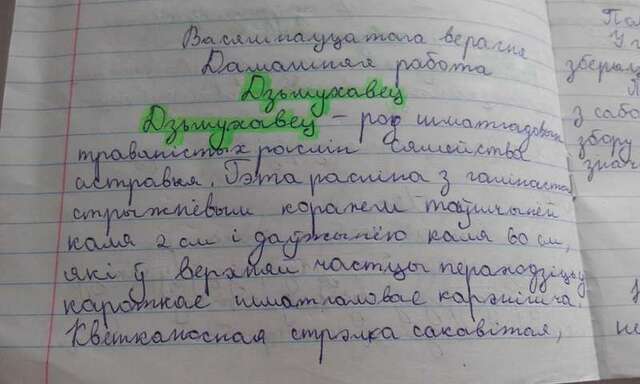 Васямнаццатага верасня
Дамашняя работа
Дзьмухавец
Дзьмухавец - род шматгадовых
травяністых раслін сямейства
астравыя. Гэта расліна з галінастым
стрыжнёвым коранем таўшчынёй
каля 2 см і даўжынёю каля 60 см,
які ў верхняй частцы пераходзіць у
кароткае шматгаловае карэнішча.
Кветканосная стрэлка сакавітая,
з сабо
збору
знач
не